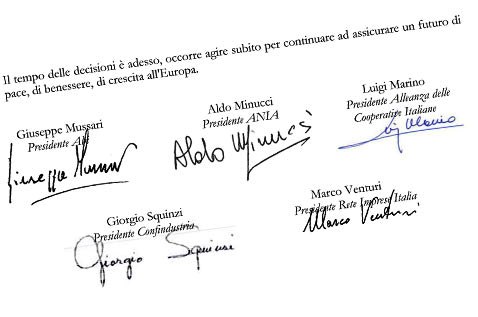 Il tempo delle decisioni è adesso, occorre agire subito per continuare ad assicurare un futuro di
pace, di benessere, di crescita all'Europa.
Giuseppe Mussari
Presidente
Giuseppe Mussari
Aldo Minucci
Presidente ANIA
Aldo Minucci
Luigi Marino
Presidente Alleanza delle
Cooperative Italiane
Giorgio Squinzi
Presidente Confindustria
Giorgio Squinzi
Marco Venturi
Presidente Rete Imprese Italia
Marco Venturi